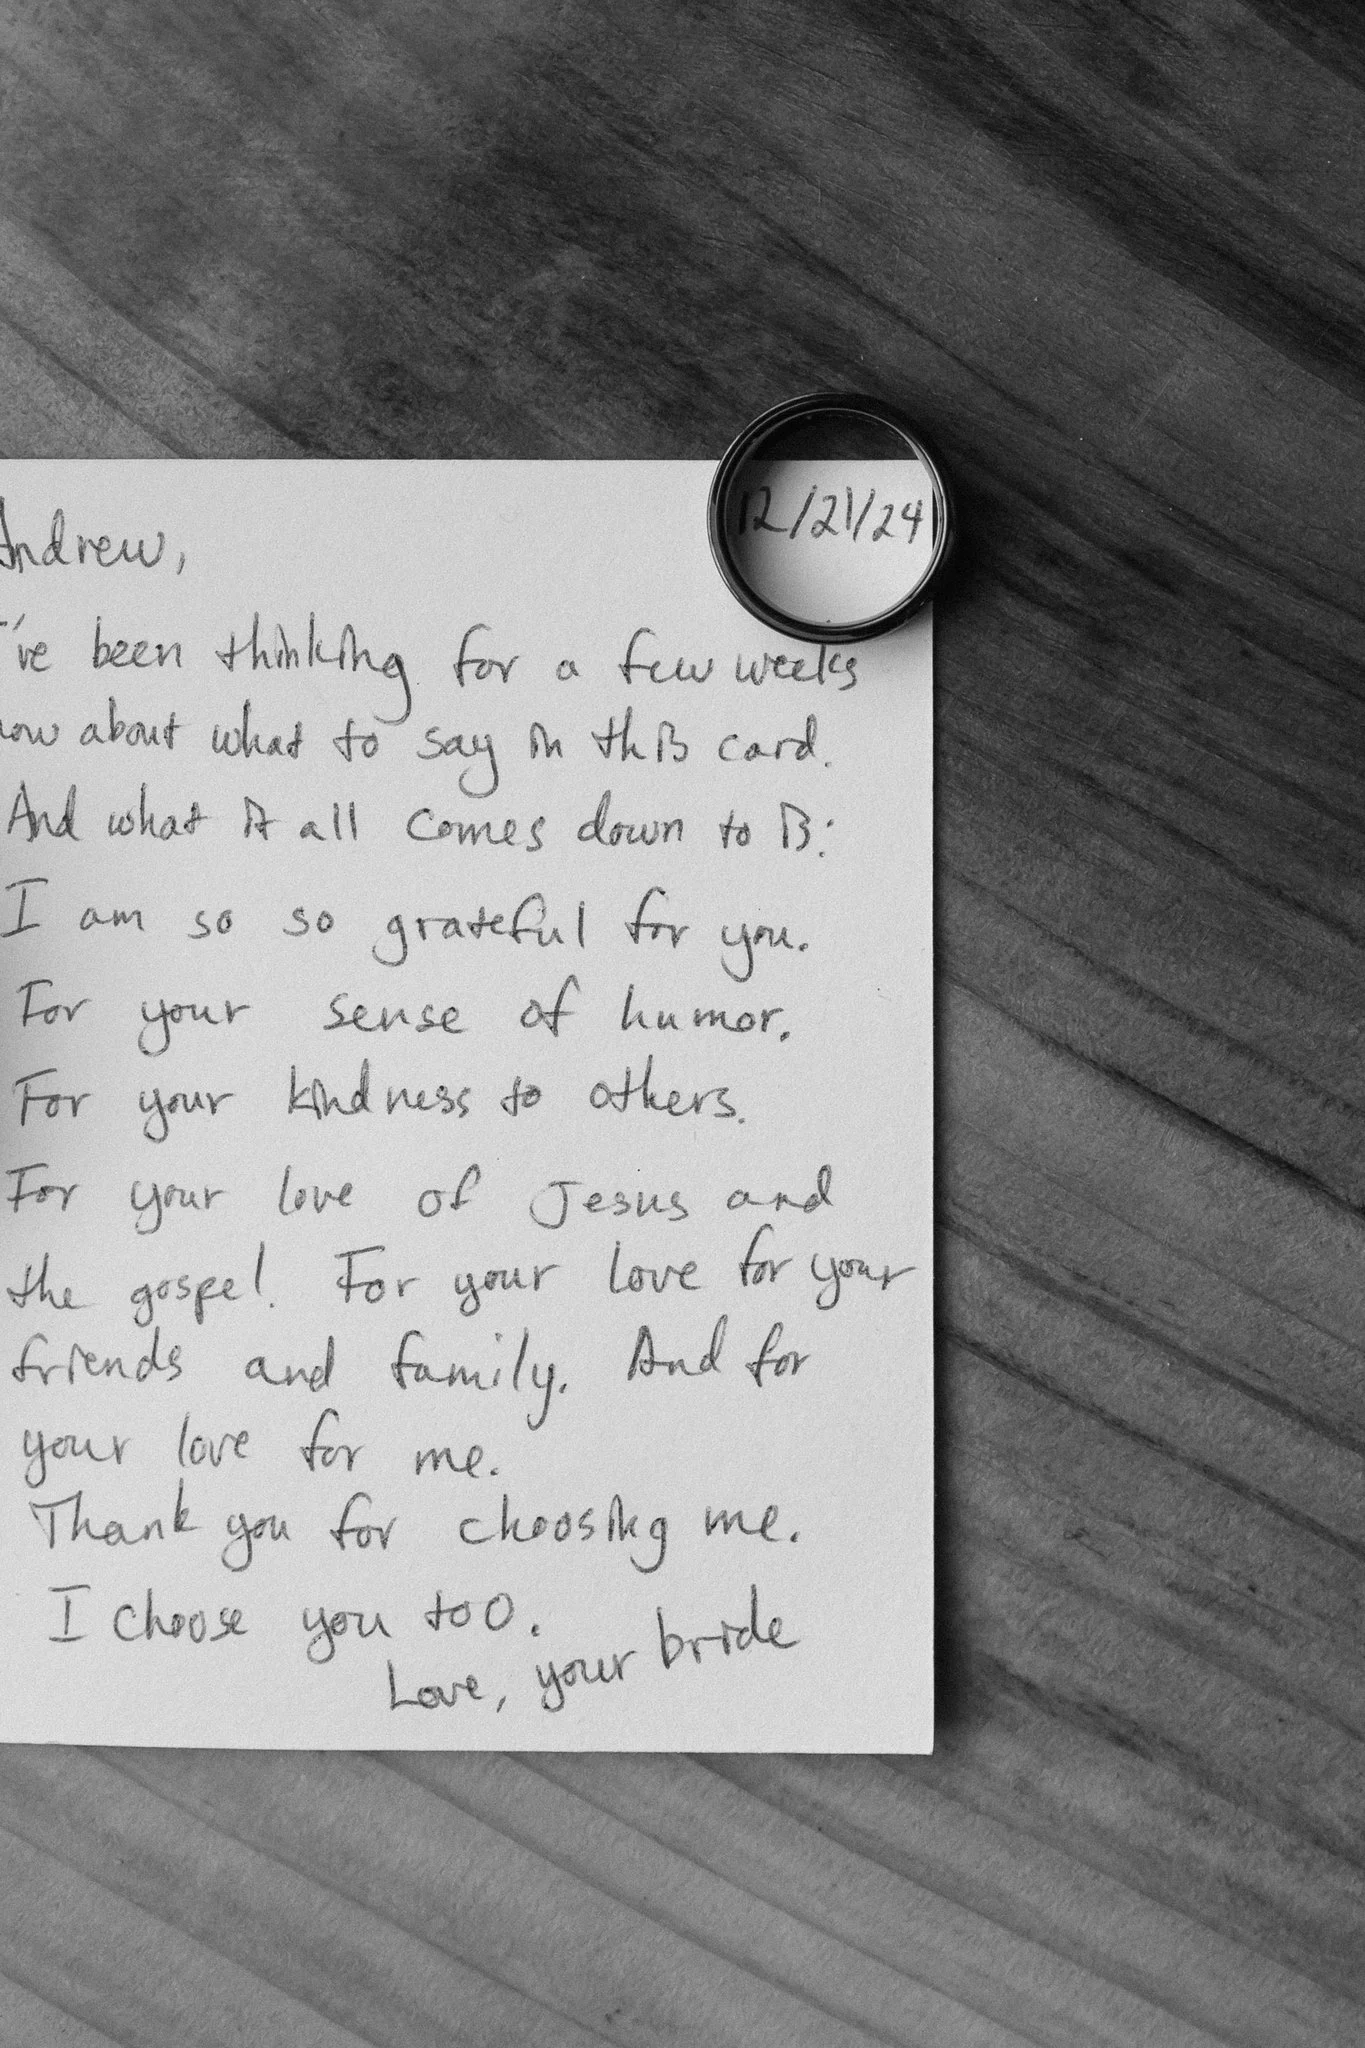 12/21/24
Andrew,
I've been thinking for a few weeks
now about what to say in this card.
And what it all comes down to is:
I am so so grateful for you.
For your sense of humor.
For your kindness to others.
For your love of Jesus and
the gospel. For your love for your
friends and family. And for
your love for me.
Thank you for choosing me.
I choose you too.
Love, your bride